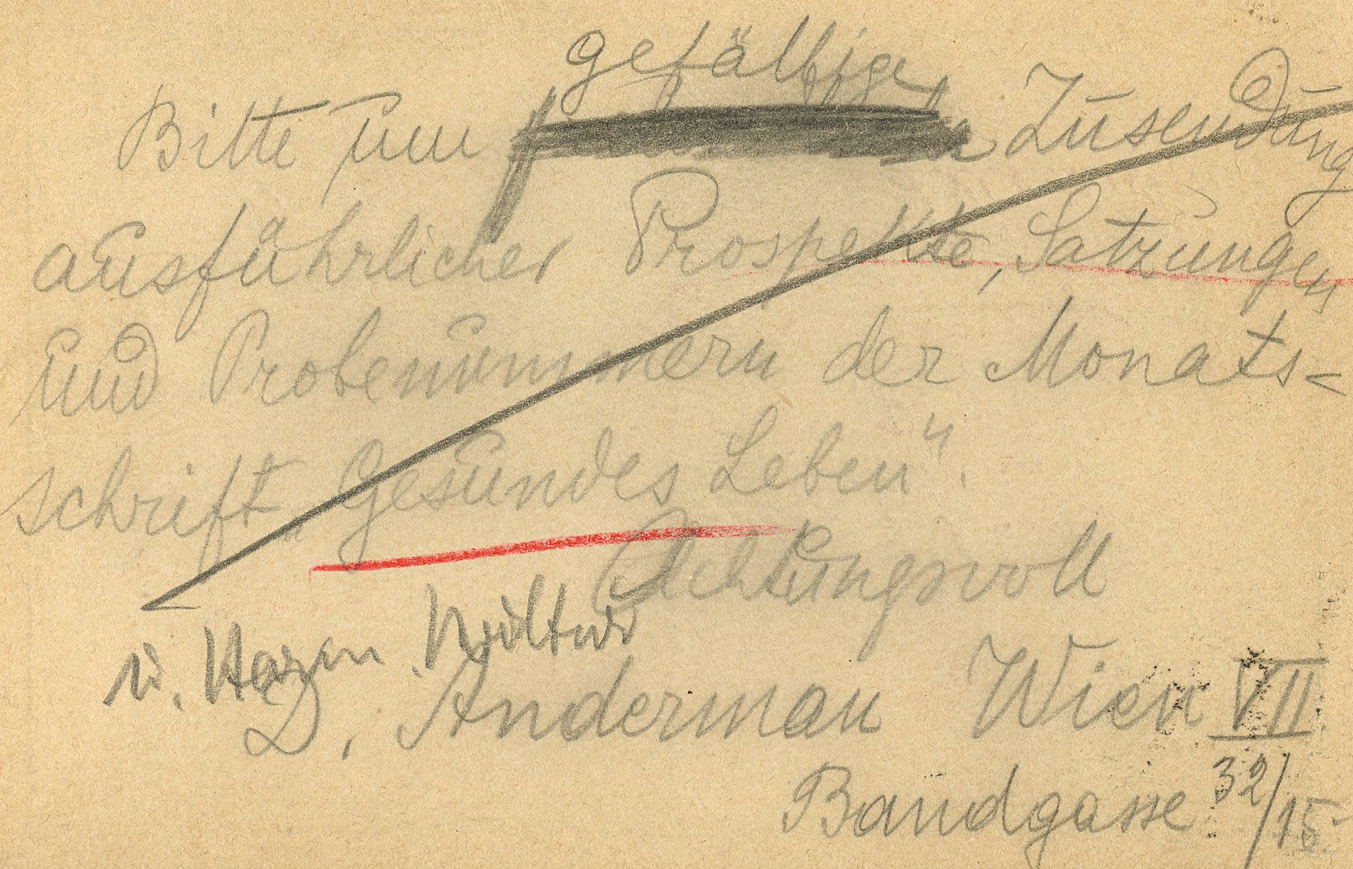 gefällige
Bitte um Zusendung
ausführlicher Prospekte, Satzungen
und Probenummern der Monats=
schrift „Gesundes Leben".
Achtungsvoll
v.
D. Anderman Wien VII
Bandgasse 32/15